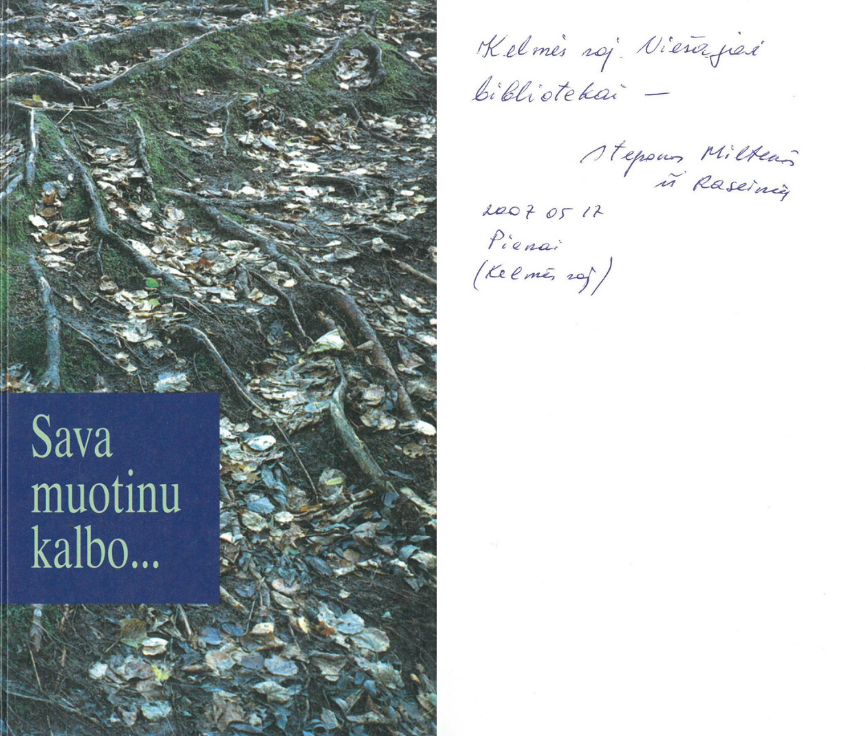 Sava
muotinu
kalbo...
Kelmės raj. Viešajai
bibliotekai —
Steponas Miltenis
iš Raseinių
2007 05 17
(Kelmės raj)